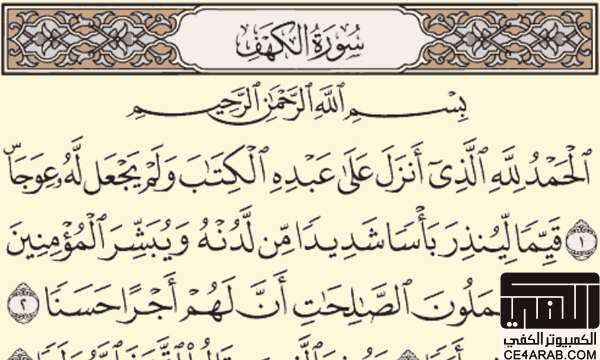 سُورَةُ الكَهْفِ
بِسْمِ ٱللَّهِ ٱلرَّحْمَٰنِ ٱلرَّحِيمِ
ٱلْحَمْدُ لِلَّهِ ٱلَّذِىٓ أَنزَلَ عَلَىٰ عَبْدِهِ ٱلْكِتَٰبَ وَلَمْ يَجْعَل لَّهُۥ عِوَجَاۜ
١ قَيِّمًا لِّيُنذِرَ بَأْسًا شَدِيدًا مِّن لَّدُنْهُ وَيُبَشِّرَ ٱلْمُؤْمِنِينَ
ٱلصَّٰلِحَٰتِ أَنَّ لَهُمْ أَجْرًا حَسَنًا ٢
الكمبيوتر الكفي
CE4ARAB.COM